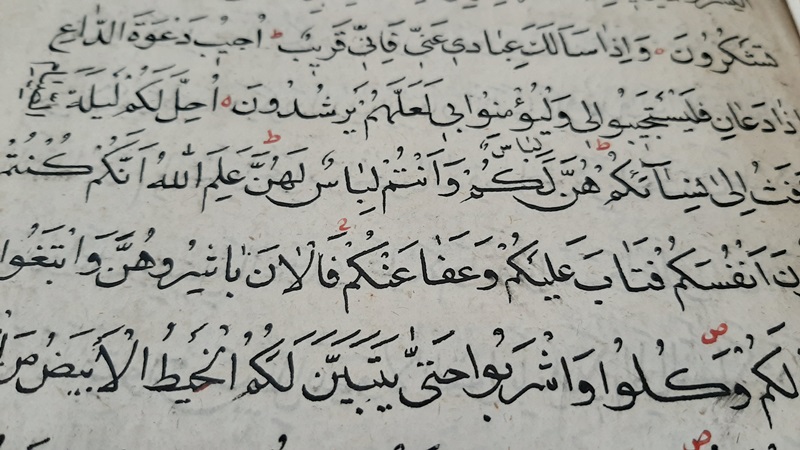 تَشْكُرُونَ ۝ وَاِذَا سَاَلَكَ عِبَادِي عَنِّي فَاِنِّي قَرِيْبٌ ط اُجِيْبُ دَعْوَةَ الدَّاعِ
اِذَا دَعَانِ فَلْيَسْتَجِيْبُوا لِي وَلْيُؤْمِنُوا بِي لَعَلَّهُمْ يَرْشُدُونَ ۝ اُحِلَّ لَكُمْ لَيْلَةَ
لِبَاسٌ
اِلٰى نِسَآئِكُمْ ط هُنَّ لَكُمْ وَاَنْتُمْ لِبَاسٌ لَهُنَّ ط عَلِمَ اللّٰهُ اَنَّكُمْ كُنْتُمْ
اَنْفُسَكُمْ فَتَابَ عَلَيْكُمْ وَعَفَا عَنْكُمْ فَالْاٰنَ بَاشِرُوهُنَّ وَابْتَغُوا
لَكُمْ ص وَكُلُوا وَاشْرَبُوا حَتّٰى يَتَبَيَّنَ لَكُمُ الْخَيْطُ الْاَبْيَضُ مِنَ